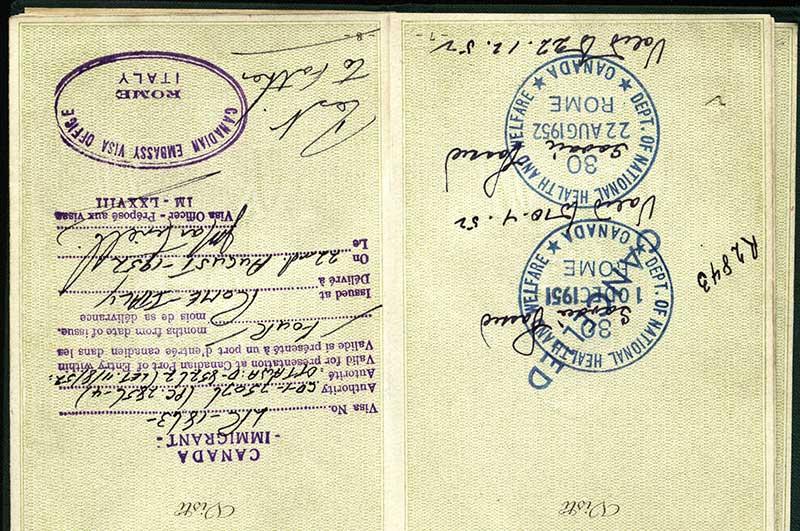 Visti
DEPT. OF NATIONAL HEALTH AND WELFARE
30
10 DEC 1951
ROME
CANADA
CANCELLED
R2843
Valid to 10.4.52
DEPT. OF NATIONAL HEALTH AND WELFARE
30
22 AUG 1952
ROME
CANADA
Valid to 22.12.52
- 7 -
Visti
CANADA
- IMMIGRANT -
Visa No.
Authority
Autorité
Valid for presentation at Canadian Port of Entry within
Valid si présenté à un port d'entrée canadien dans les
Four months from date of issue.
mois de sa délivrance
Issued at ROME - ITALY
Délivré à
On 22nd AUGUST - 1952
Le
Visa Officer - Préposé aux visas
IM - LXXVIII
CANADIAN EMBASSY VISA OFFICE
ROME
ITALY
To Father
- 8 -